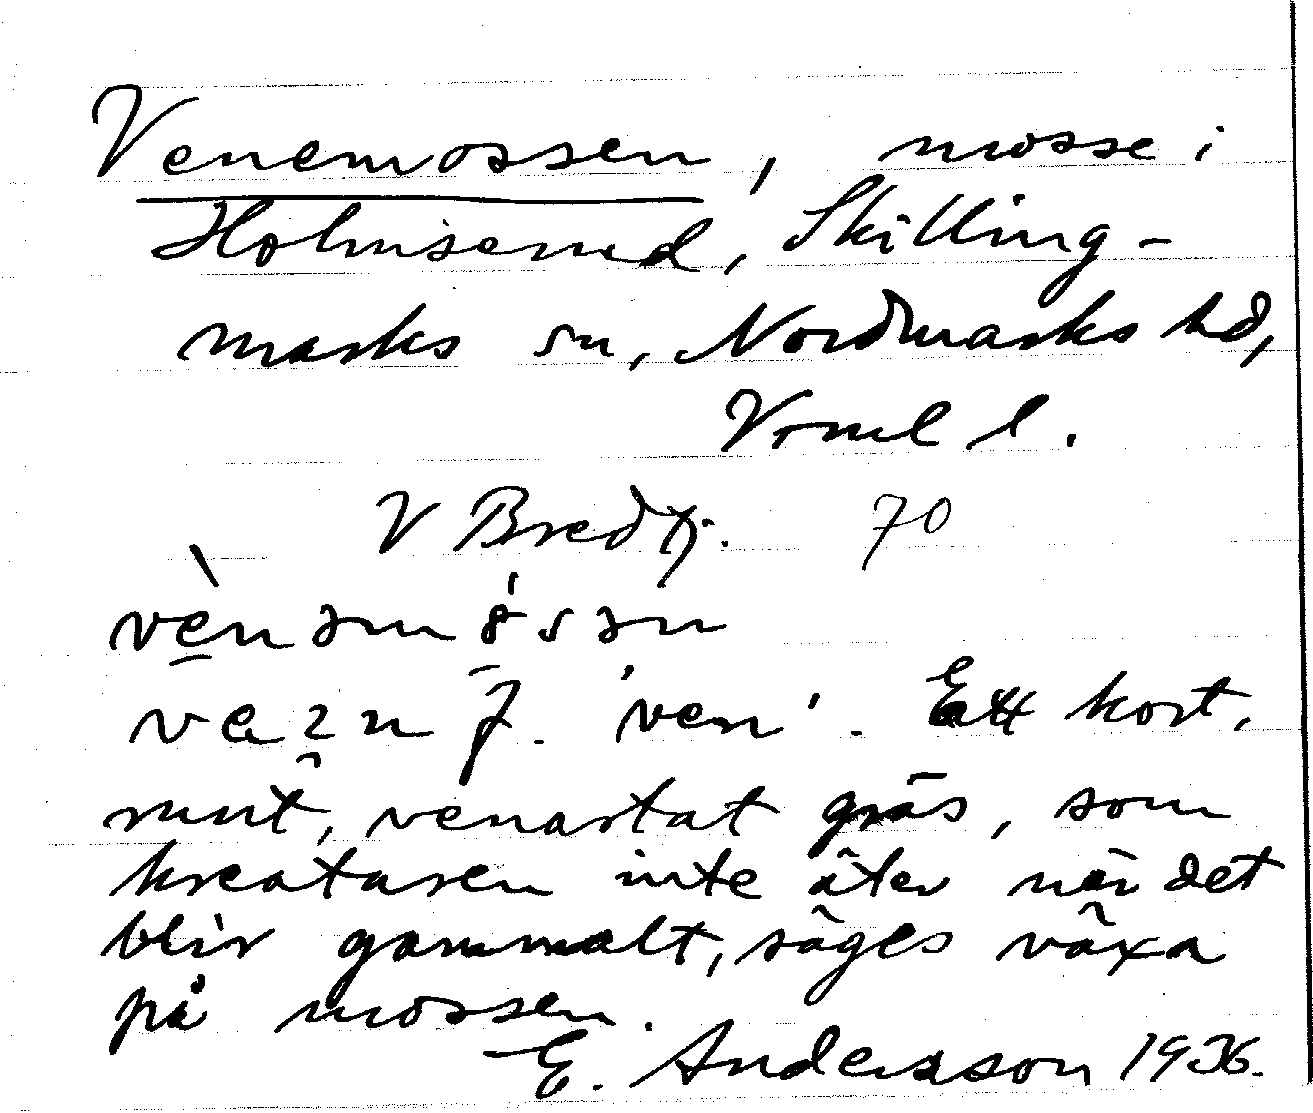 Venemossen, mosse i
Holmserud, Skilling-
marks sn, Nordmarks hd,
Vrml l.
V Bredfj. 70
vènəmósən
f. 'ven'. Ett kort,
runt, venartat gräs, som
kreaturen inte äter när det
blir gammalt, säges växa
på mossen.
E. Andersson 1936.